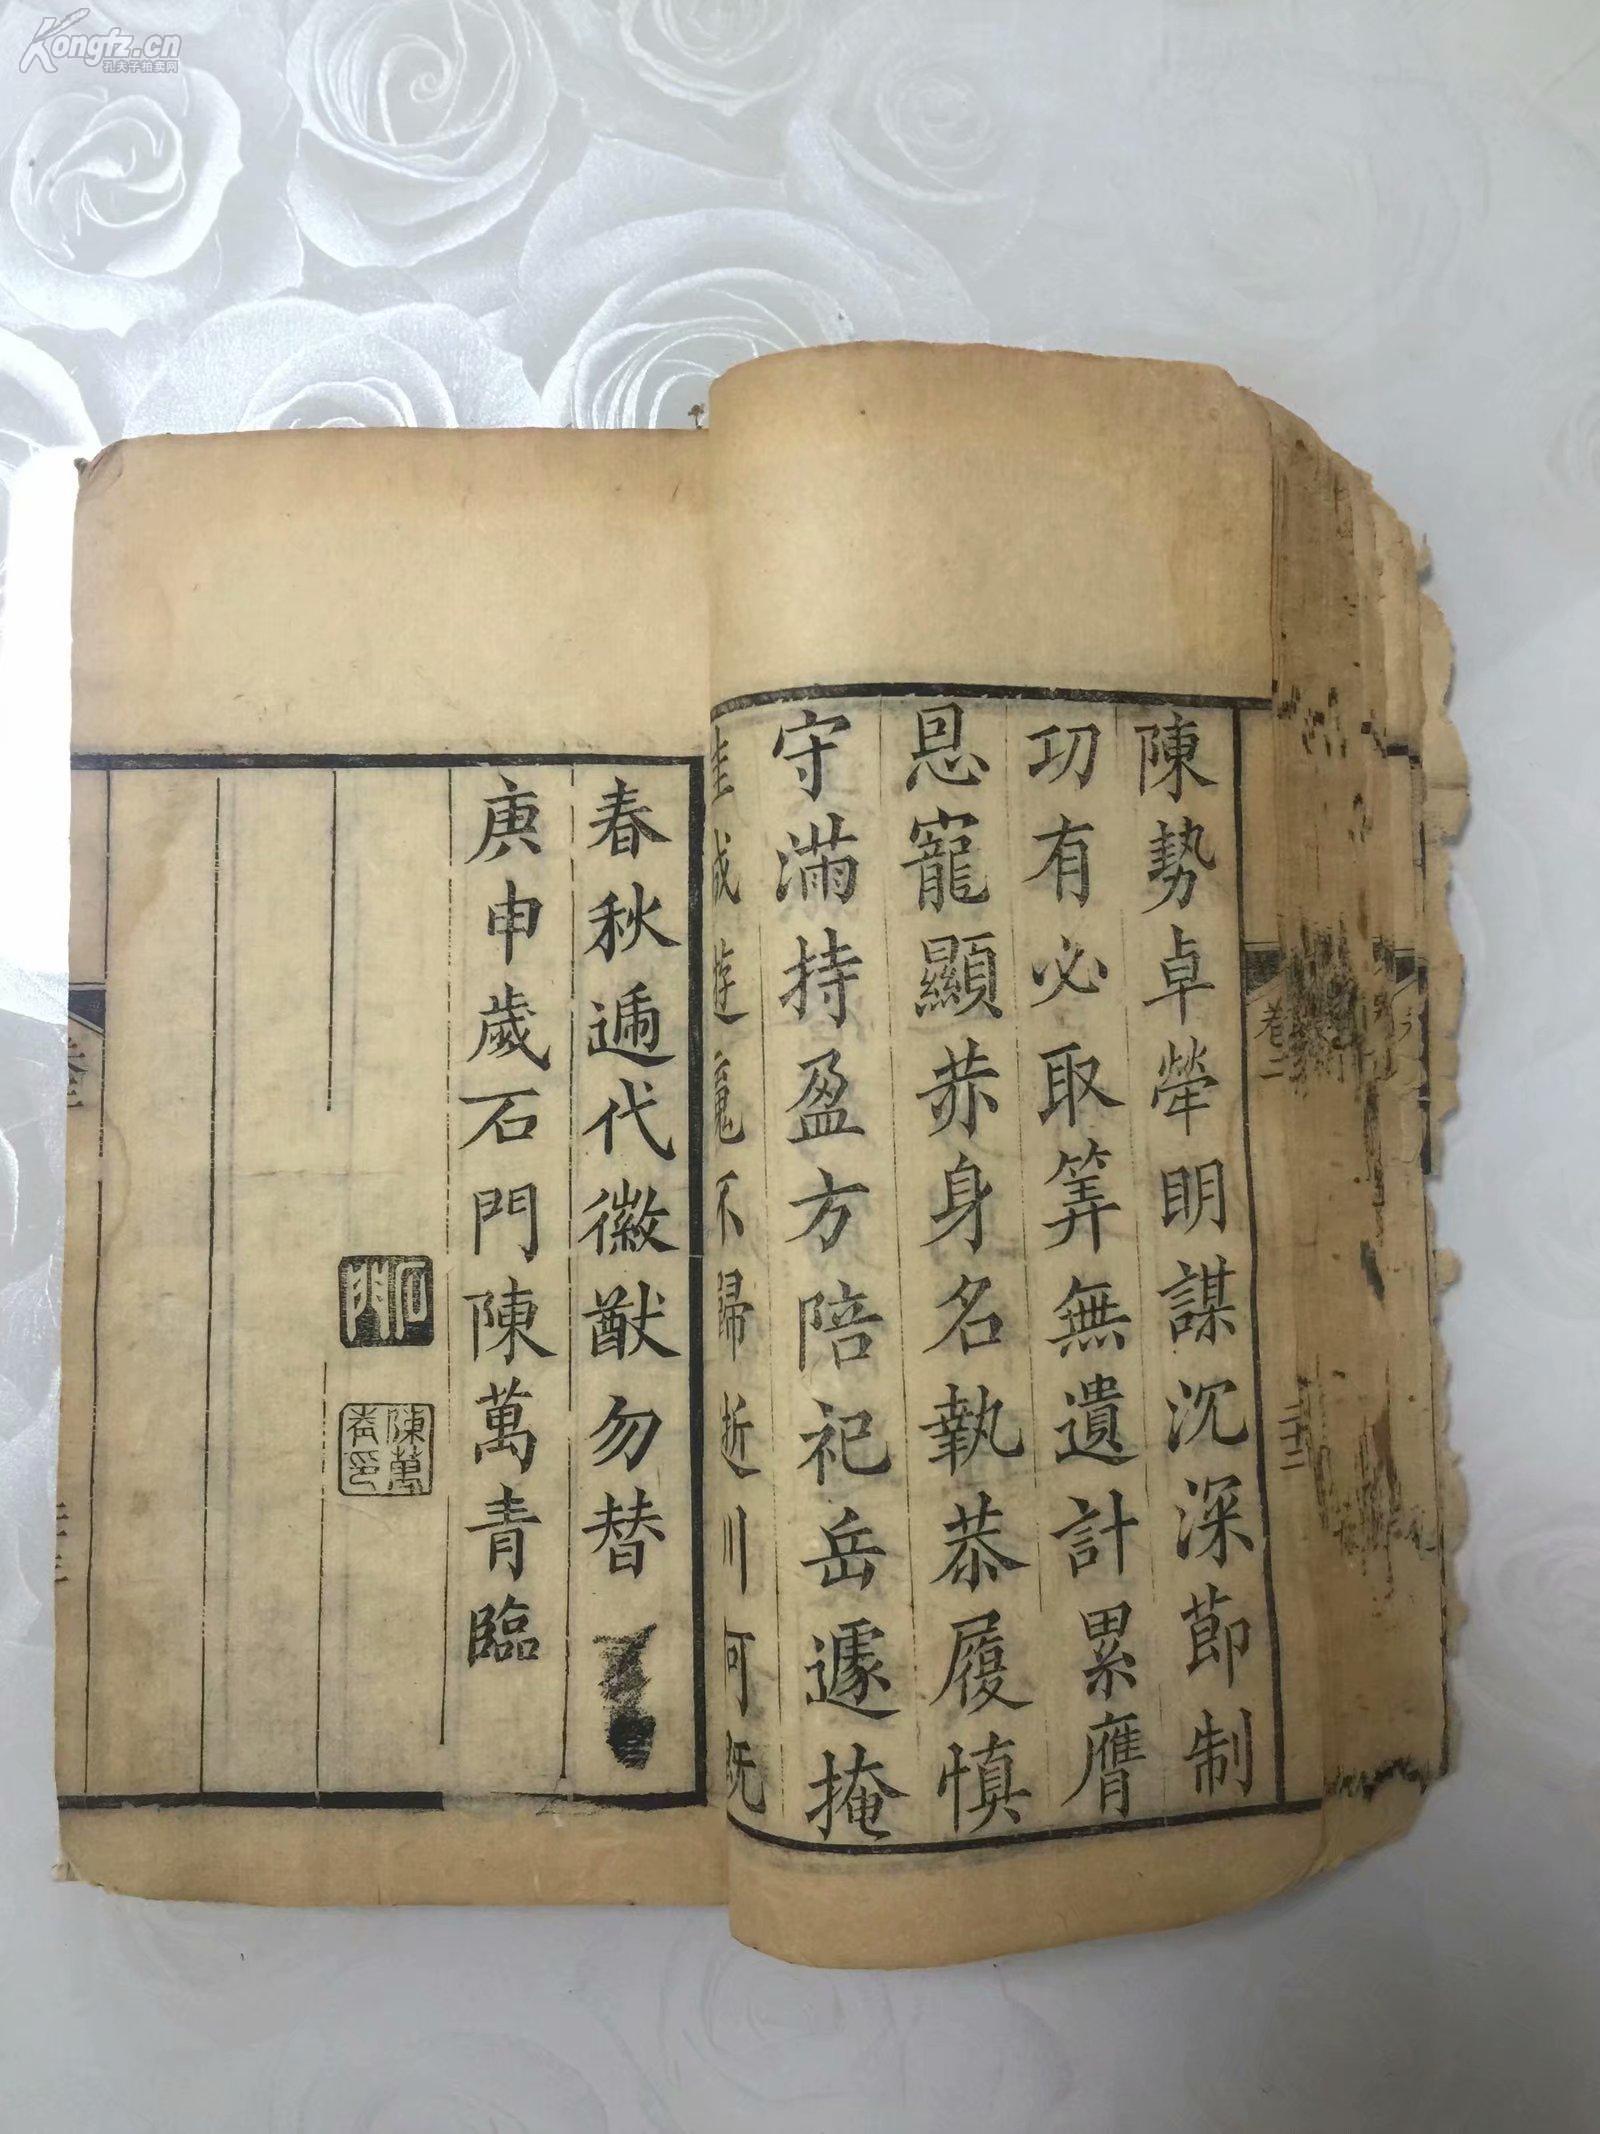 陳勢卓犖明謀沉深節制
功有必取筭無遺計累膺
恩寵顯恭身名執恭履慎
守滿持盈方陪祀岳遽掩
魂不歸逝川可既
春秋遞代徽猷勿替
庚申歲石門陳萬青臨
石門
陳萬青印
卷二
二十二
Kongfz.cn
孔夫子拍卖网